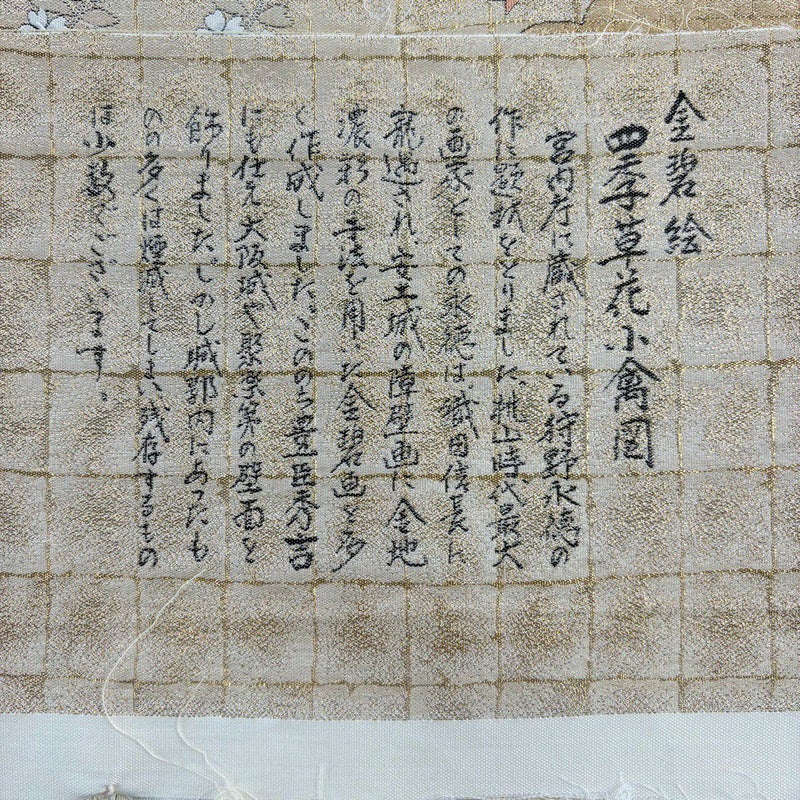 金碧絵
四季草花小禽図
宮内庁に蔵されている狩野永徳の
作に題材をとりました。桃山時代最大
の画家としての永徳は、織田信長に
寵遇され、安土城の障壁画に金地
濃彩の手法を用いた金碧画を多
く作成しました。こののち豊臣秀吉
にも仕え大阪城や聚楽第の壁面を
飾りました。しかし城郭内にあったも
のの多くは煙滅してしまい残存するもの
は少数でございます。